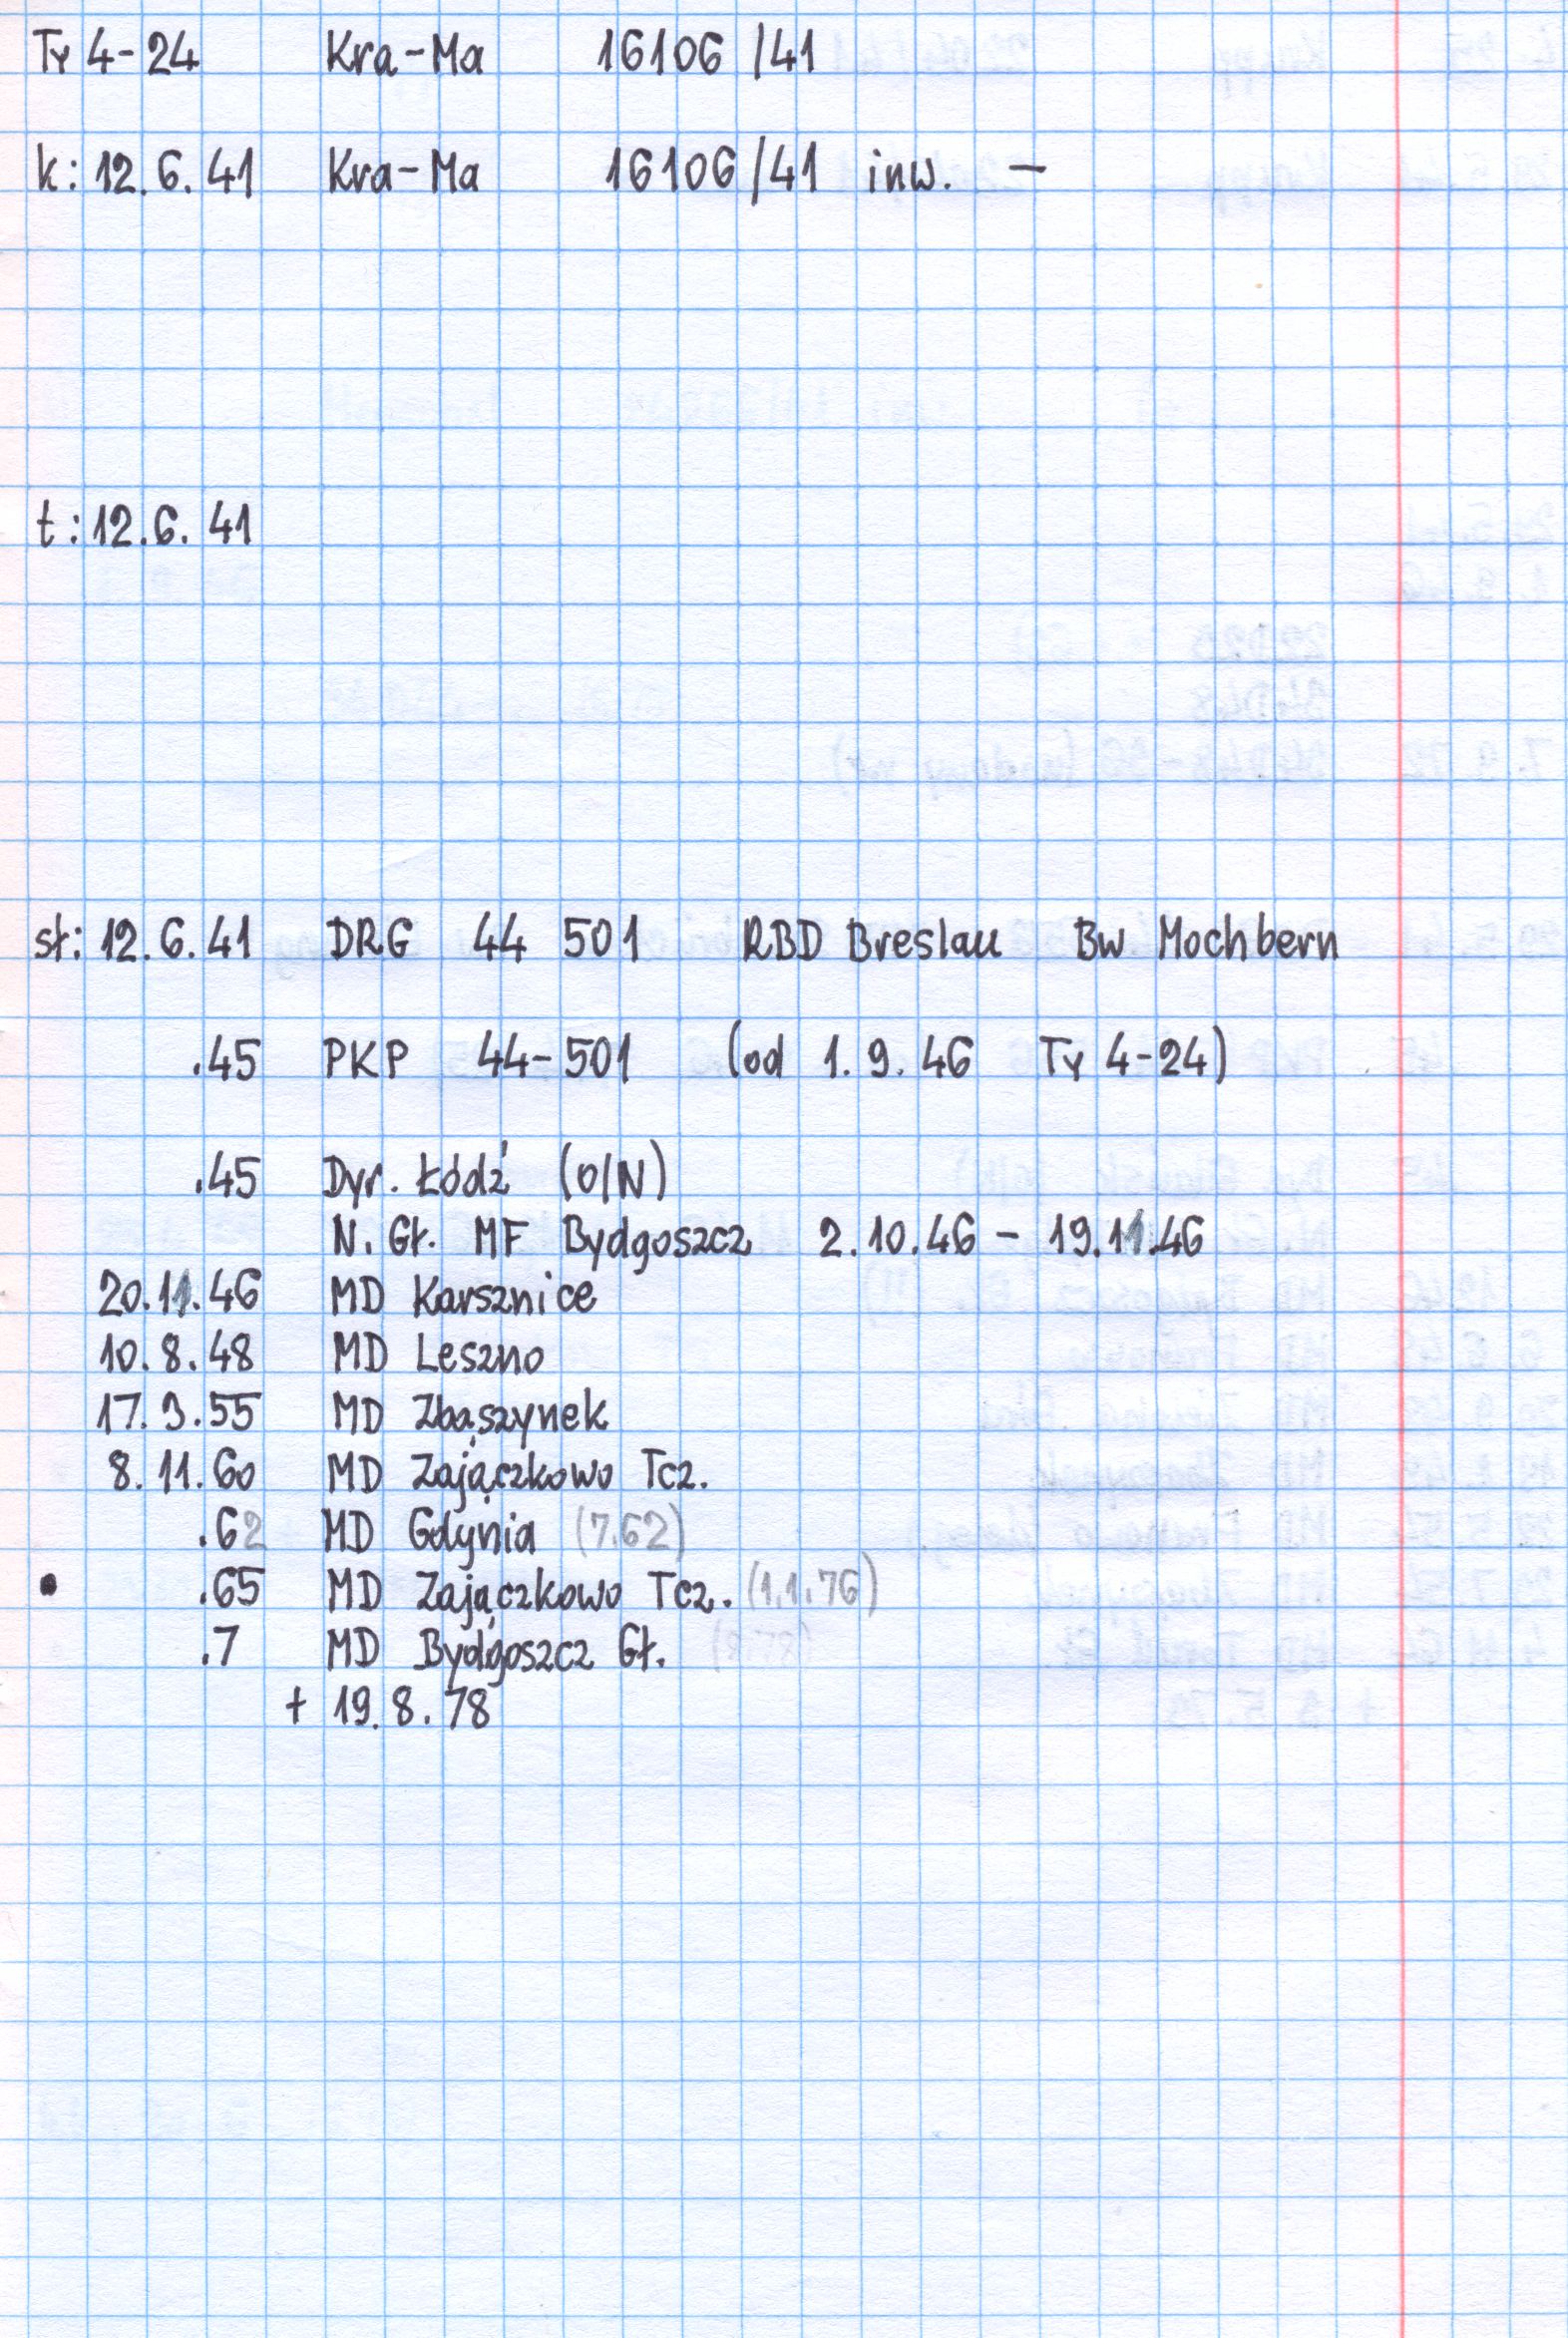 Ty 4-24 Kra-Ma 16106 /41
k: 12.6.41 Kra-Ma 16106/41 inw. —
t: 12.6.41
st: 12.6.41 DRG 44 501 RBD Breslau Bw Mochbern
.45 PKP 44-501 (od 1.9.46 Ty 4-24)
.45 Dyr. Łódź (O/N)
N. Gł. MF Bydgoszcz 2.10.46 - 19.11.46
20.11.46 MD Karsznice
10.8.48 MD Leszno
17.3.55 MD Zbąszynek
8.11.60 MD Zajączkowo Tcz.
.62 MD Gdynia (7.62)
• .65 MD Zajączkowo Tcz. (1.1.76)
.7 MD Bydgoszcz Gł.
+ 19.8.78